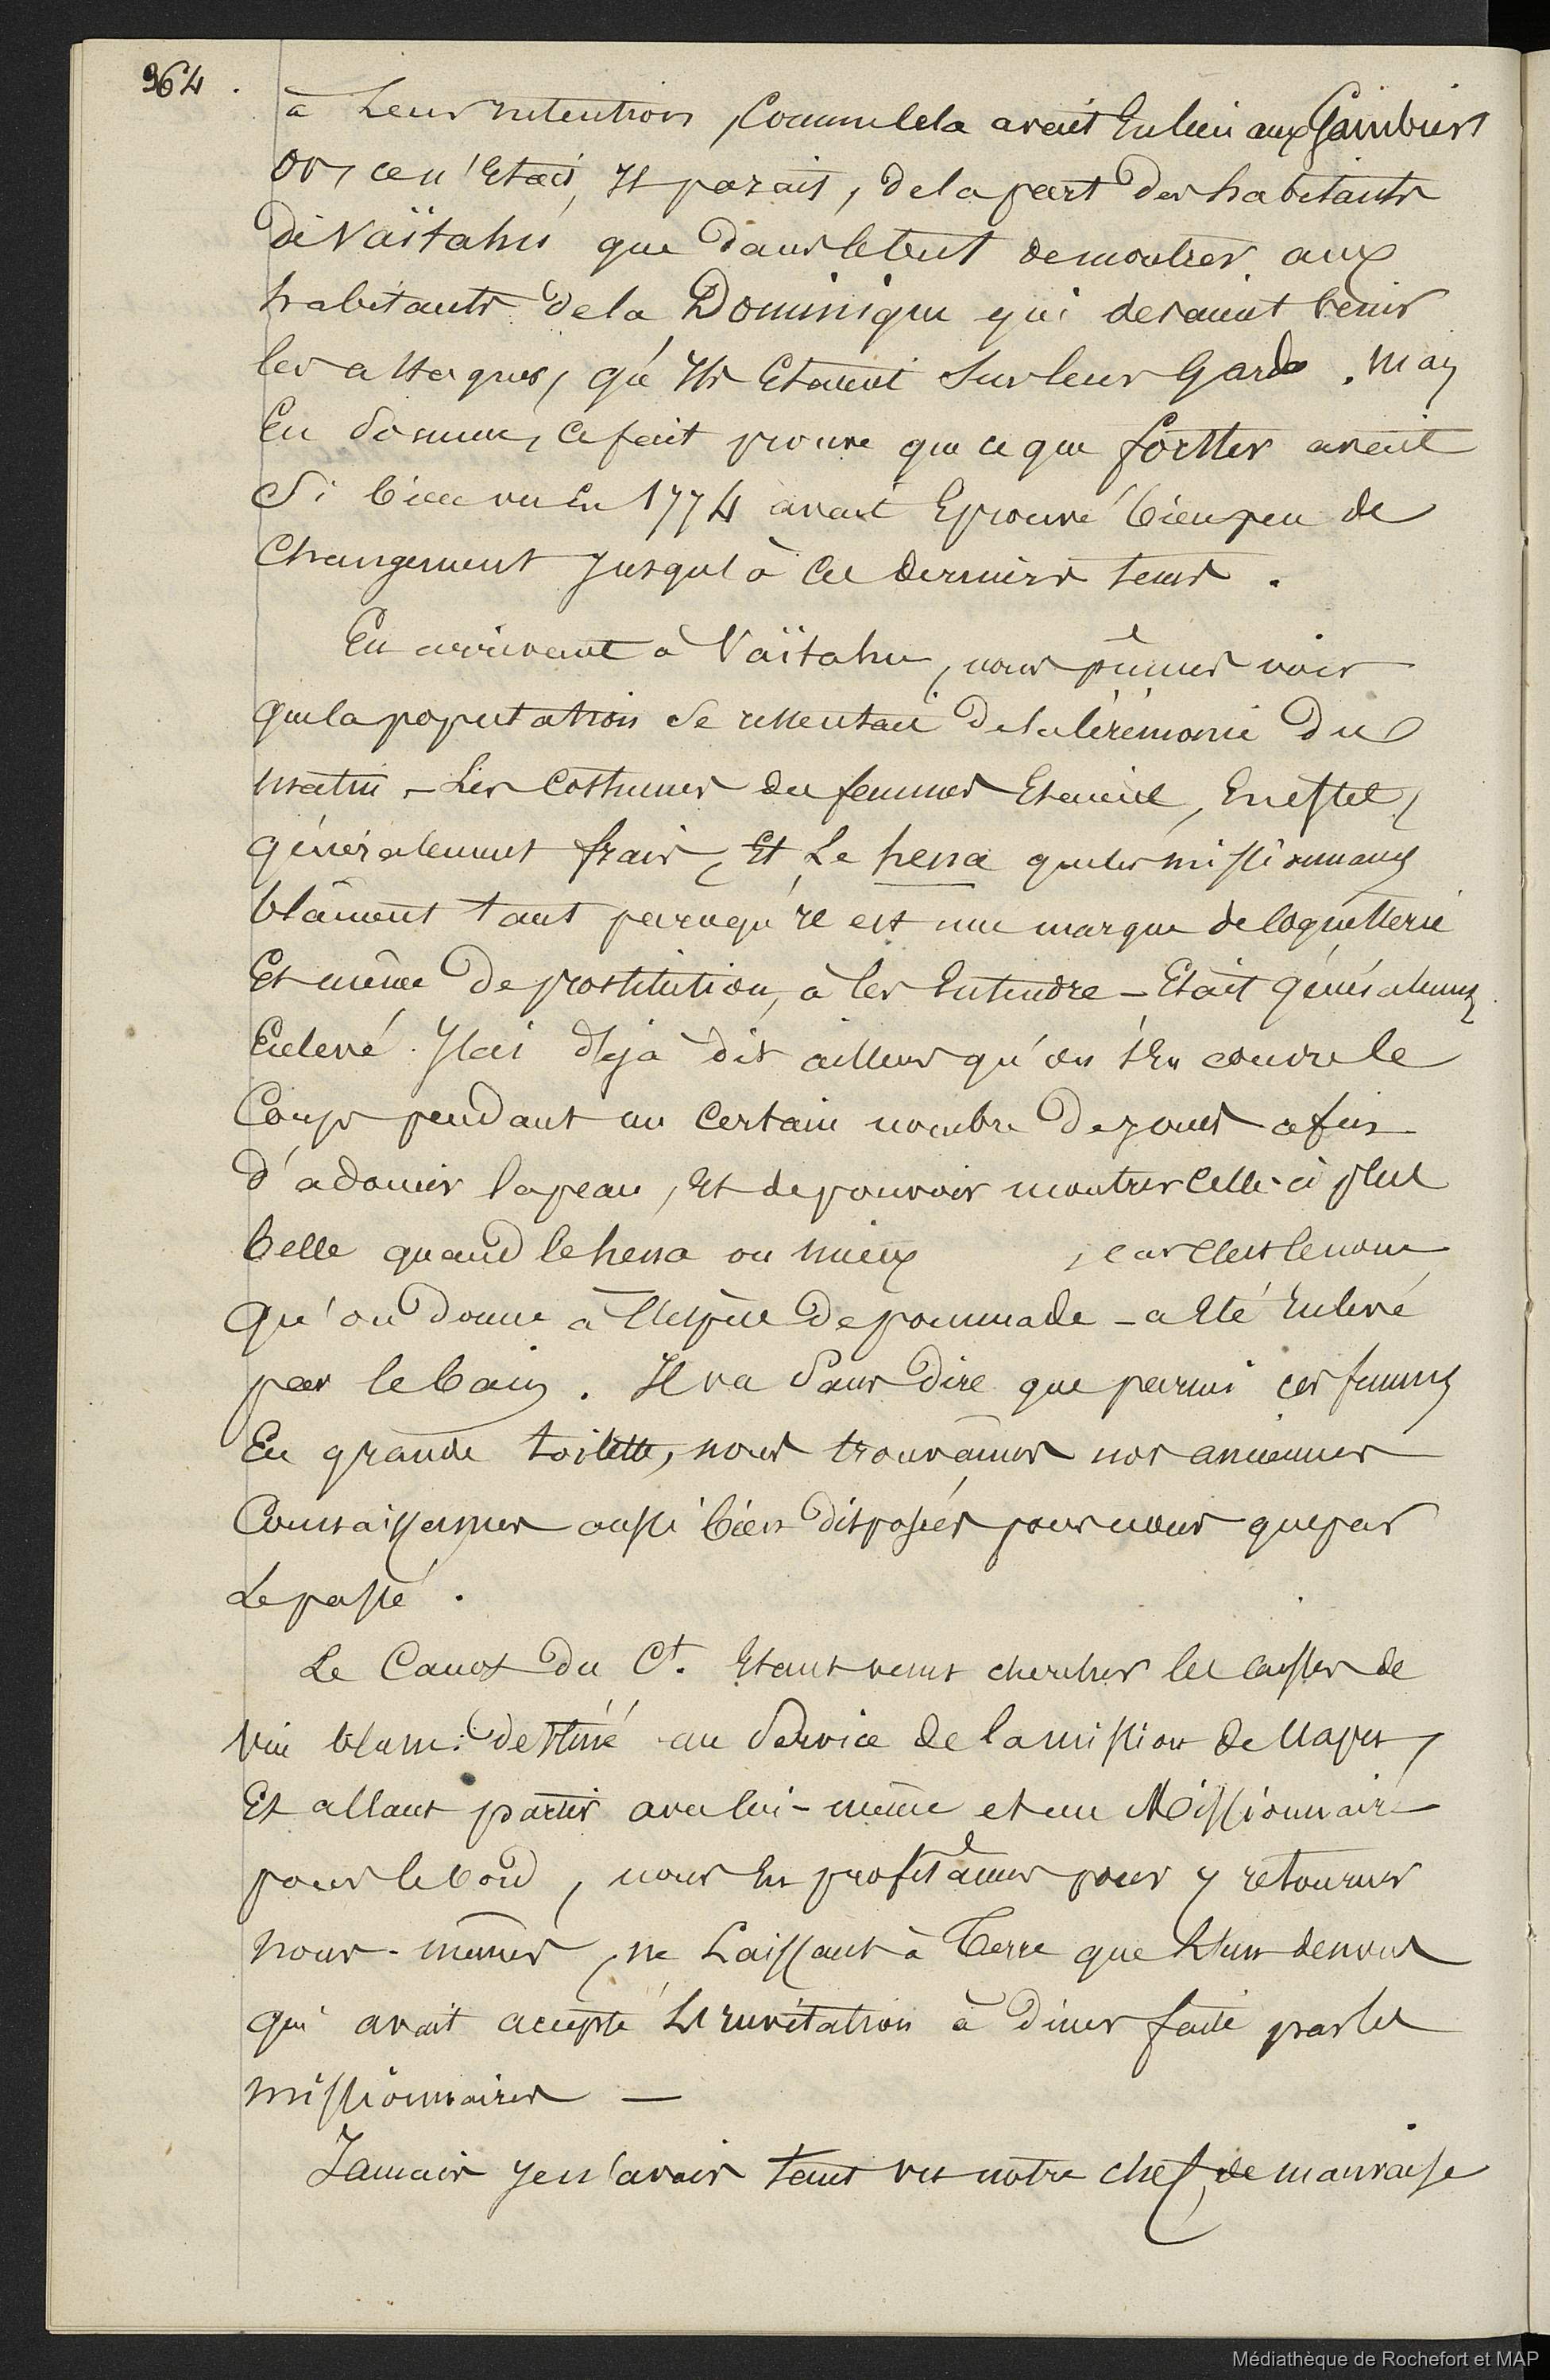 964.
à Leur intention, Comme Cela avait Eu lieu aux Gambiers
or, ce n'Etait, Il parait, de la part des habitants
de Vaïtahu que dans le but de montrer aux
habitants de la Dominique qui devaient venir
les attaquer, qu'Ils Etaient Sur leur Garde. Mais
En Somme, Ce fait prouve que ce que forster avait
Si bien vu En 1774 avait Eprouvé bien peu de
Changement Jusqu'à Ces derniers tems.
En arrivant à Vaïtahu, nous pûmes voir
que la population Se ressentait de la Cérémonie du
matin - Les Costumes des femmes Etaient, En effet,
généralement frais, Et Le hena que les missionnaires
blâment tant parcequ'il est une marque de Coquetterie
Et même de prostitution, à les Entendre - Etait généralement
Enlevé. J'ai déja dit ailleurs qu'on s'En couvre le
Corps pendant un Certain nombre de jours afin
d'adoucir la peau, Et de pouvoir montrer Celle-ci plus
belle quand le hena ou mieux , car C'est le nom
qu'on donne à l'Espèce de pommade - a Eté Enlevé
par le bain. Il va Sans Dire que parmi ces femmes
En grande toilette, nous trouvâmes nos anciennes
Connaissances aussi bien disposées pour nous que par
Le passé.
Le Canot du Ct. Etant venu chercher les Caisses de
vin blanc destiné au Service de la mission de Uapu,
Et allant partir avec lui-même et un Missionnaire
pour le bord, nous En profitâmes pour y retourner
nous-mêmes, ne Laissant à Terre que l'un de nous
qui avait accepté L'invitation à diner faite par les
missionnaires —
Jamais Je n'avais tant vu notre chef de mauvaise
Médiathèque de Rochefort et MAP